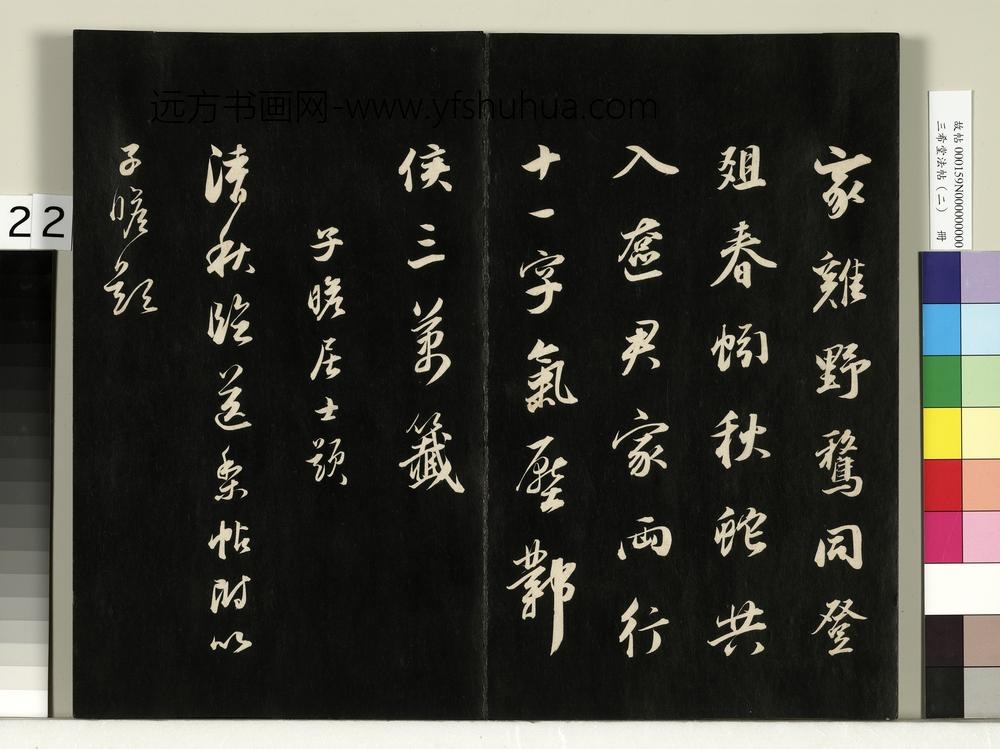 家雞野鶩同登
爼春蚓秋蛇共
入奩君家兩行
十一字氣壓鄴
侯三萬籤
子瞻居士題
清秋臨送梨帖附以
子瞻題
远方书画网-www.yfshuhua.com
故帖 000159N000000000
三希堂法帖（二） 冊
22